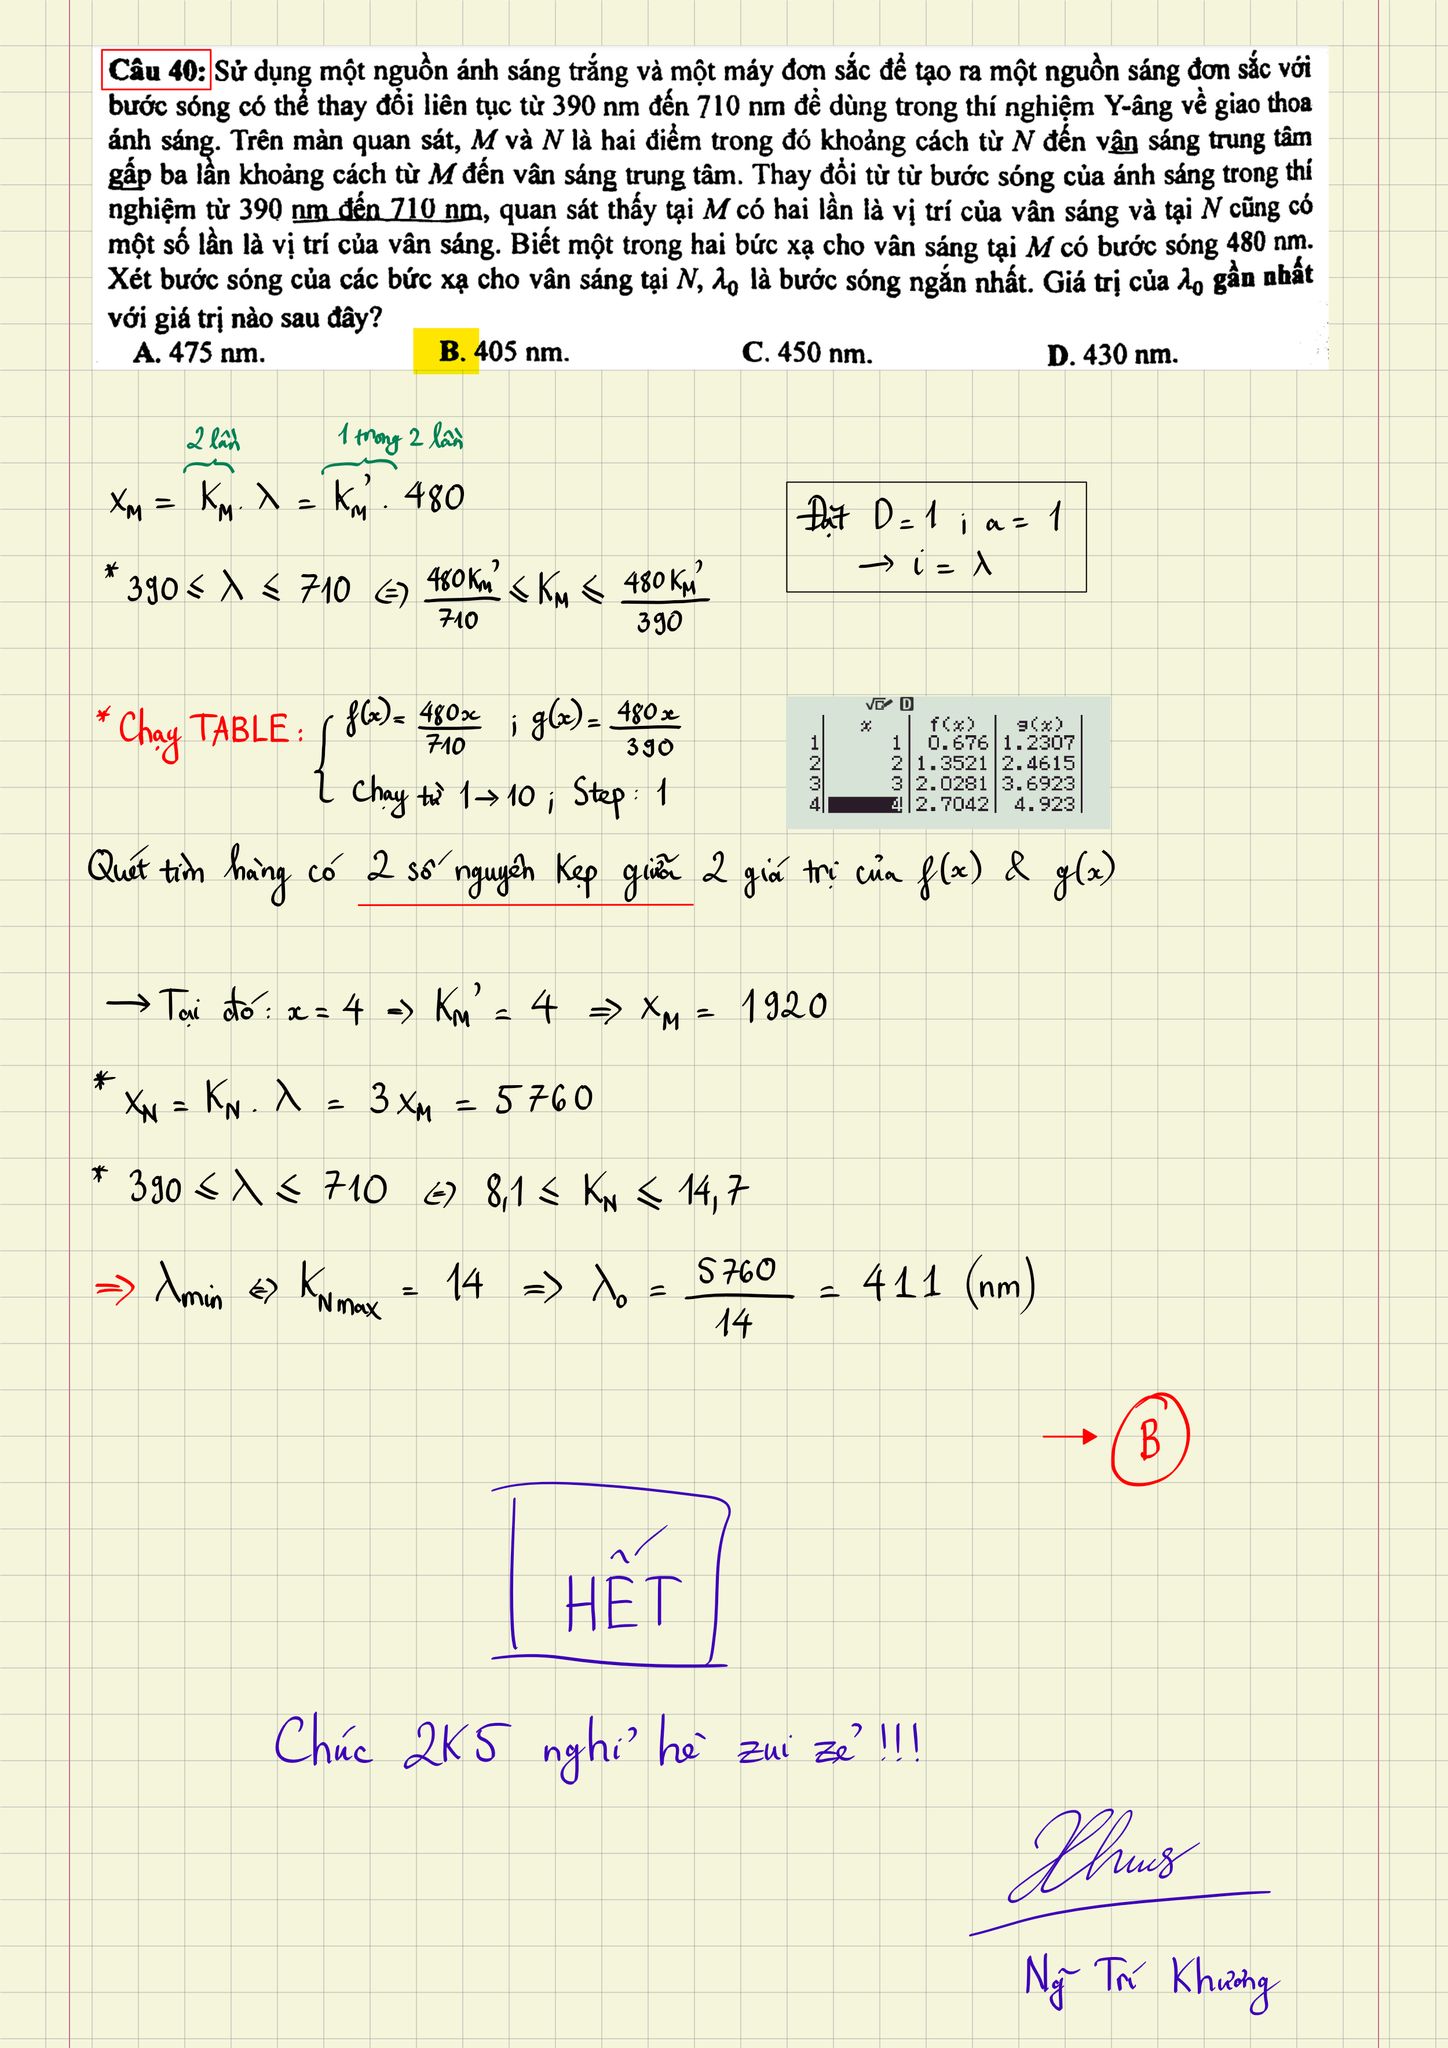 Câu 40: Sử dụng một nguồn ánh sáng trắng và một máy đơn sắc để tạo ra một nguồn sáng đơn sắc với
bước sóng có thể thay đổi liên tục từ 390 nm đến 710 nm để dùng trong thí nghiệm Y-âng về giao thoa
ánh sáng. Trên màn quan sát, M và N là hai điểm trong đó khoảng cách từ N đến vân sáng trung tâm
gấp ba lần khoảng cách từ M đến vân sáng trung tâm. Thay đổi từ từ bước sóng của ánh sáng trong thí
nghiệm từ 390 nm đến 710 nm, quan sát thấy tại M có hai lần là vị trí của vân sáng và tại N cũng có
một số lần là vị trí của vân sáng. Biết một trong hai bức xạ cho vân sáng tại M có bước sóng 480 nm.
Xét bước sóng của các bức xạ cho vân sáng tại N, λ₀ là bước sóng ngắn nhất. Giá trị của λ₀ gần nhất
với giá trị nào sau đây?
A. 475 nm. B. 405 nm. C. 450 nm. D. 430 nm.
2 lần 1 trong 2 lần
x_M = K_M . λ = K_M' . 480
Đặt D = 1 ; a = 1
→ i = λ
* 390 ≤ λ ≤ 710 ⇔ 480K_M'/710 ≤ K_M ≤ 480K_M'/390
* Chạy TABLE: { f(x) = 480x/710 ; g(x) = 480x/390
Chạy từ 1 → 10 ; Step: 1
√▫ D
x f(x) g(x)
1 1 0.676 1.2307
2 2 1.3521 2.4615
3 3 2.0281 3.6923
4 4 2.7042 4.923
Quét tìm hàng có 2 số nguyên kẹp giữa 2 giá trị của f(x) & g(x)
→ Tại đó: x = 4 ⇒ K_M' = 4 ⇒ x_M = 1920
* x_N = K_N . λ = 3x_M = 5760
* 390 ≤ λ ≤ 710 ⇔ 8,1 ≤ K_N ≤ 14,7
⇒ λmin ⇔ K_Nmax = 14 ⇒ λ₀ = 5760/14 = 411 (nm)
→ B
HẾT
Chúc 2K5 nghỉ hè zui zẻ !!!
Ng~ Trí Khương